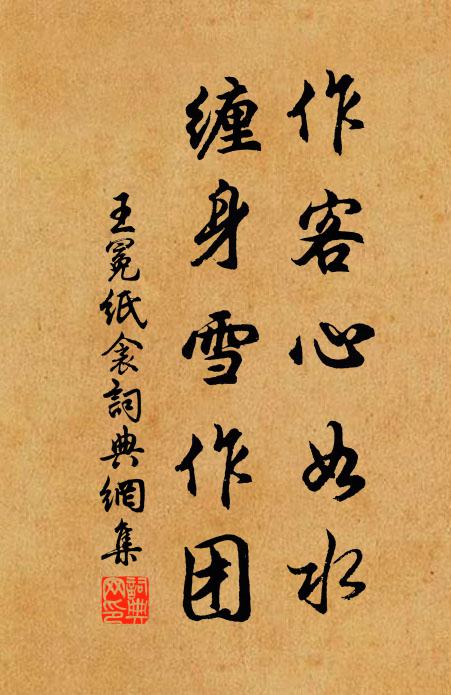 作客心如水
缠身雪作团
王冕纸衾詞典網集
詞典网印